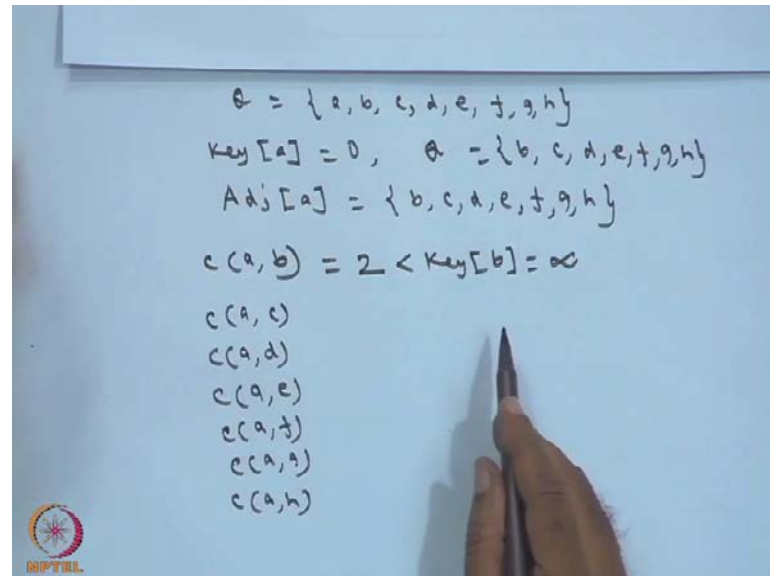 Q = {a, b, c, d, e, f, g, h}
Key [a] = 0, Q = {b, c, d, e, f, g, h}
Adj [a] = {b, c, d, e, f, g, h}
c(a, b) = 2 < Key[b] = ∞
c(a, c)
c(a, d)
c(a, e)
c(a, f)
c(a, g)
c(a, h)
NPTEL